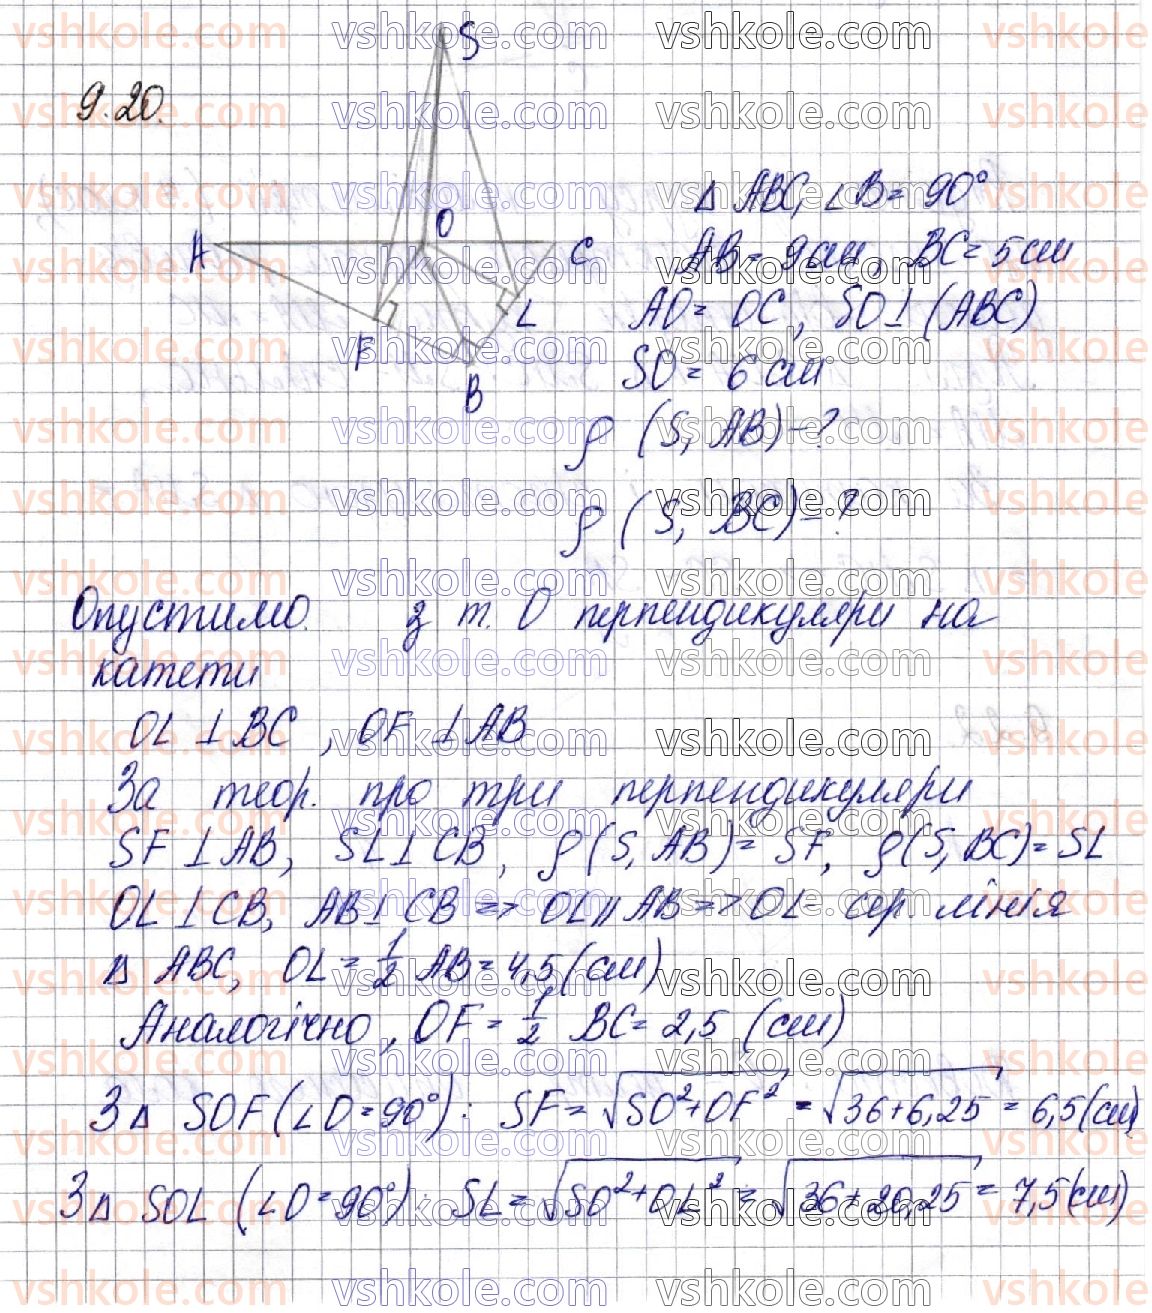 9.20.
S
O
A
C
L
F
B
Δ ABC, ∠B = 90°
AB = 9 см, BC = 5 см
AO = OC, SO ⊥ (ABC)
SO = 6 см
ρ (S, AB) - ?
ρ (S, BC) - ?
Опустимо з т. O перпендикуляри на
катети
OL ⊥ BC, OF ⊥ AB
За теор. про три перпендикуляри
SF ⊥ AB, SL ⊥ CB, ρ(S, AB) = SF, ρ(S, BC) = SL
OL ⊥ CB, AB ⊥ CB => OL || AB => OL - сер. лінія
Δ ABC, OL = 1/2 AB = 4,5 (см)
Аналогічно, OF = 1/2 BC = 2,5 (см)
З Δ SOF (∠O = 90°): SF = √(SO² + OF²) = √(36 + 6,25) = 6,5 (см)
З Δ SOL (∠O = 90°): SL = √(SO² + OL²) = √(36 + 20,25) = 7,5 (см)
vshkole.com